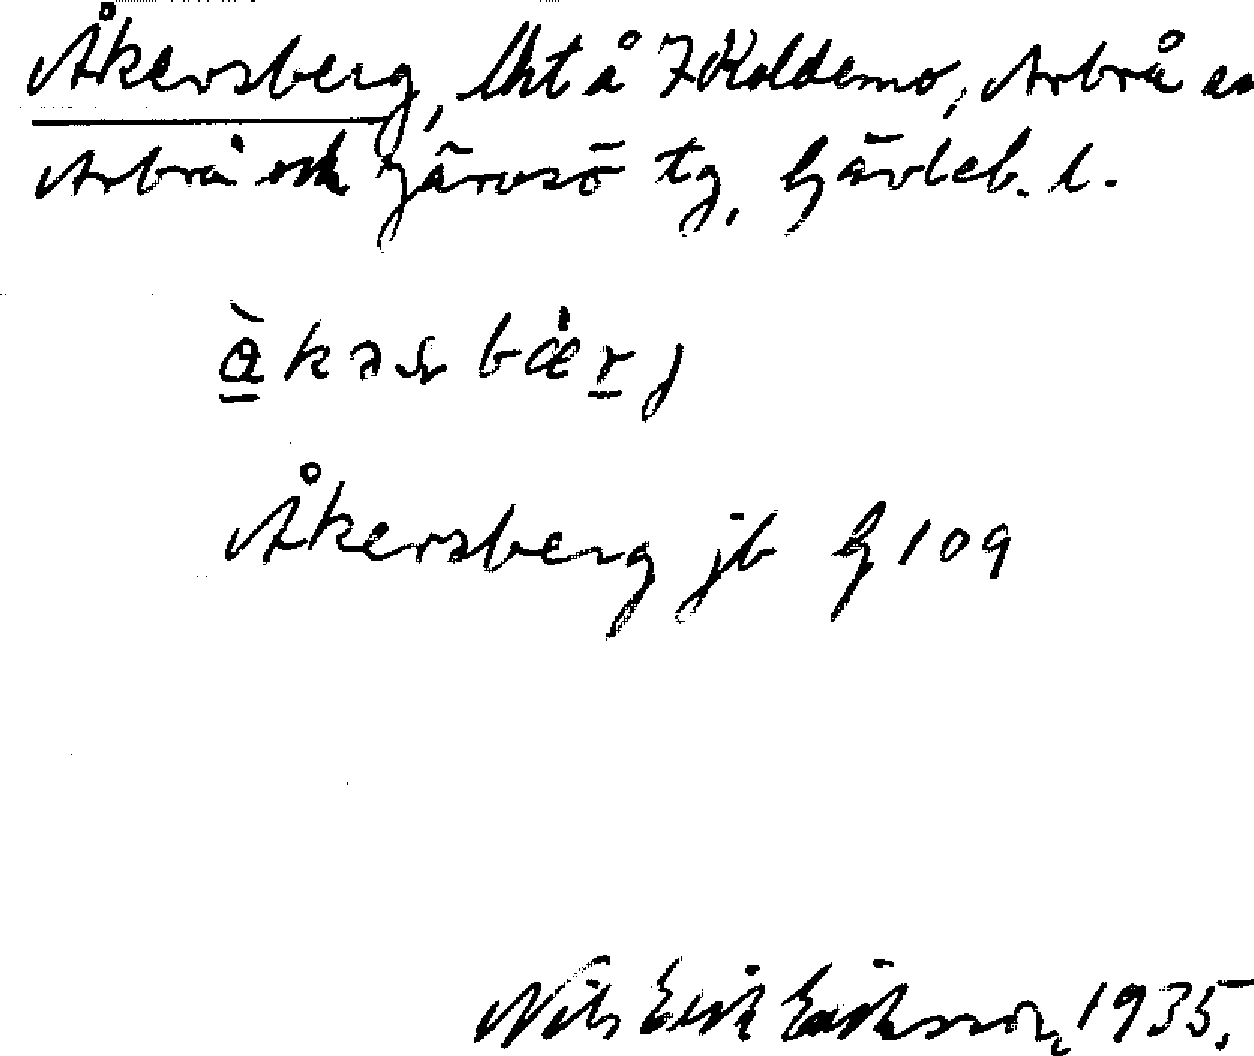 Åkersberg, lht å 7 Koldemo, Arbrå sn
Arbrå och Järvsö tg, Gävleb. l.
Åkersberg jb G 109
Nils Erik Eriksson, 1935.